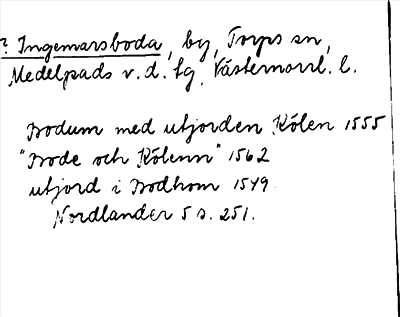 ? Ingemarsboda, by, Torps sn,
Medelpads v. d. tg, Västernorrl. l.
Bodum med utjorden Kölen 1555
"Bode och Kölenn" 1562
utjord i Bodhom 1549
Nordlander 5 s. 251.